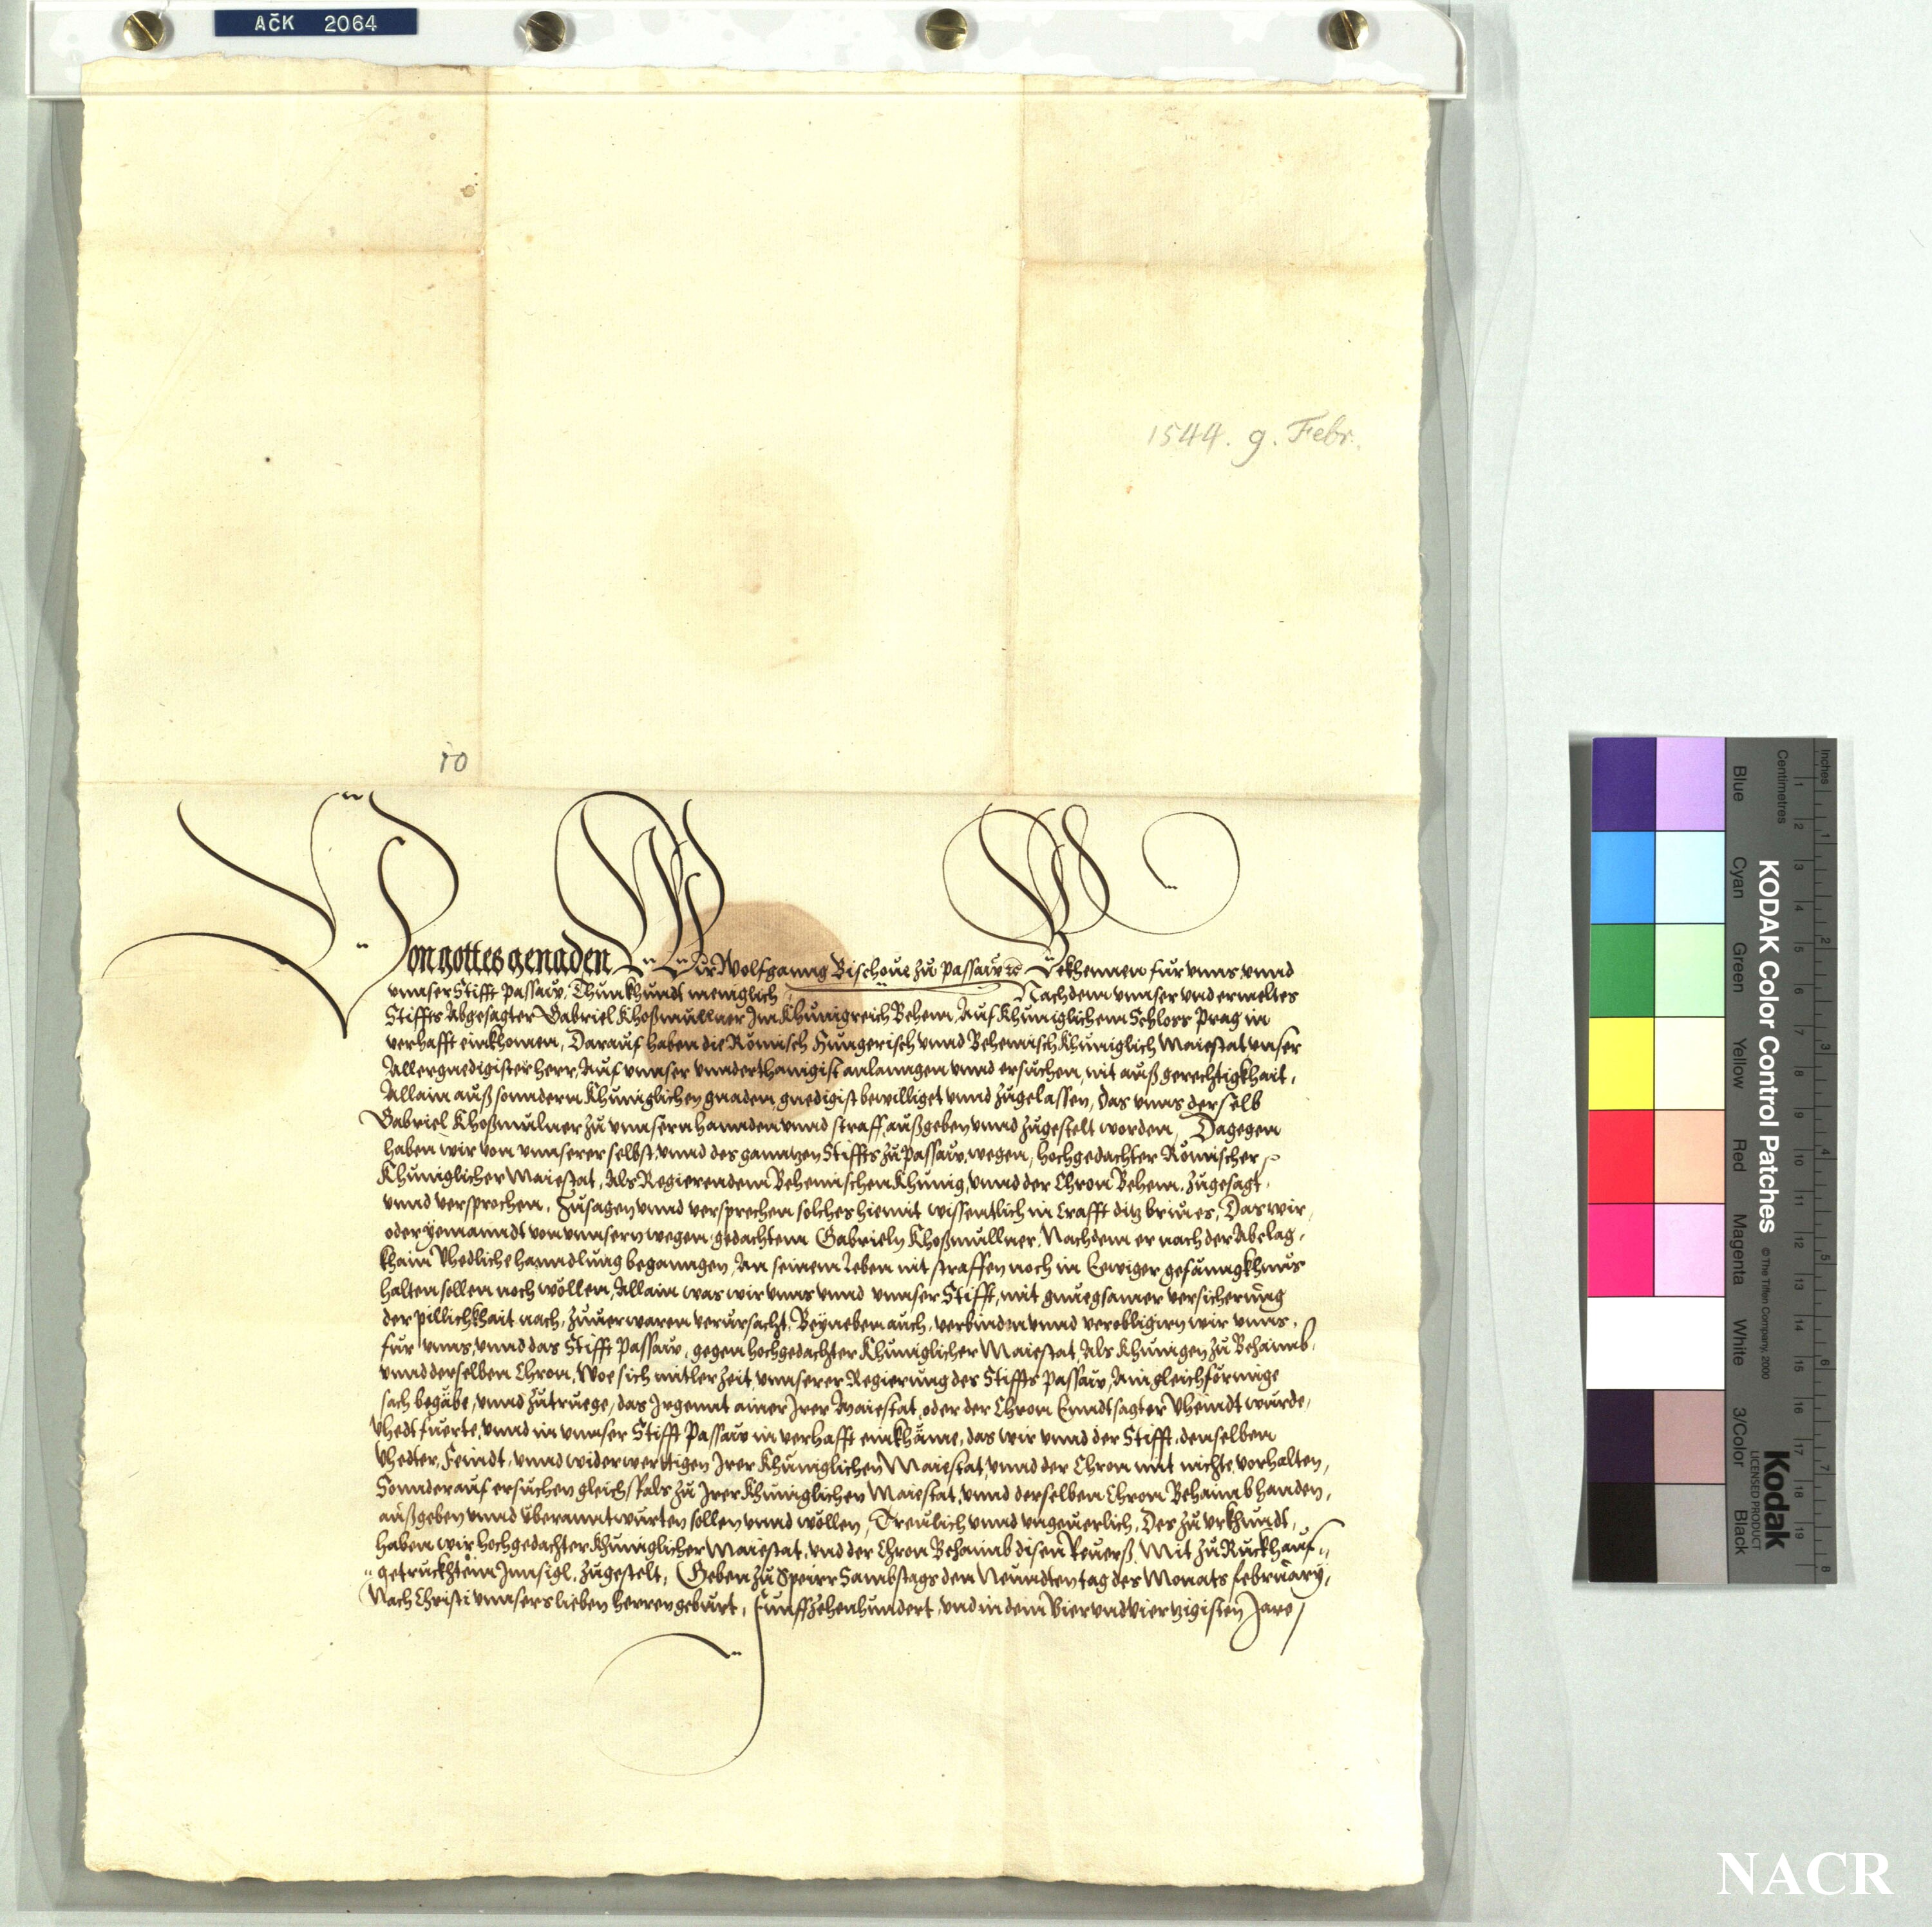 AČK 2064
1544. 9. Febr.
10
Von gottes genaden Wir Wolfganng Bischoue zu Passaw ꝛc Bekhennen fur vnns vnnd
vnnser Stifft Passaw, Thun khundt meniglich Nachdem vnnser vnd ermeltes
Stiffts Abgesagter Gabriel Khoßmullner Im Khunigreich Behem, Auf Khuniglichem Schloss Prag in
verhafft einkhomen, Darauf haben die Römisch Hungerisch vnnd Behemisch Khuniglich Maiestat vnser
Allergnedigister herr, Auf vnnser vnnderthanigist anlanngen vnnd ersuchen, nit auß gerechtigkhait,
Allain auß sonndern Khuniglichen gnaden, gnedigist bewilliget vnnd zugelassen, das vnns derselb
Gabriel Khoßmulner zu vnnsern hannden vnnd straff, außgeben vnnd zugestelt worden, Dagegen
haben wir von vnnserer selbst, vnnd des ganntzen Stiffts zu Passaw, wegen, hochgedachter Römischer
Khuniglicher Maiestat, Als Regierendem Behemischen Khunig, vnnd der Chron Behem, zugesagt,
vnnd versprochen, Zusagen vnnd versprechen solches hiemit wissentlich in Crafft ditz briues, Das wir,
oder yemanndt von vnnsern wegen, gedachtem Gabrieln Khoßmullner, Nachdem er nach der Absag,
khain Vhedliche hanndlung beganngen, An seinem leben nit straffen noch in Ewiger gefänngkhnus
halten sollen noch wöllen, Allain was wir vnns vnnd vnnser Stifft, mit gnuegsamer versicherung
der pillichkhait nach, zuuerwaren verursacht, Beyneben auch, verbinden vnnd verobligirn wir vnns,
fur vnns, vnnd das Stifft Passaw, gegen hochgedachter Khuniglicher Maiestat, Als Khunigen zu Behaimb,
vnnd derselben Chron, Woe sich mitler Zeit, vnnserer Regierung des Stiffts Passaw, Ain gleichförmige
sach begäbe, vnnd zutruege, das Irgennt ainer Irer Maiestat, oder der Chron Enndtsagter Vheindt wurde,
Vhedt fuerte, vnnd in vnnser Stifft Passaw in verhafft einkhäme, das wir vnnd der Stifft, denselben
Vhedter, Feindt, vnnd widerwerttigen Irer Khuniglichen Maiestat, vnnd der Chron mit nichte vorhalten,
Sonnder auf ersuchen gleichsfals zu Irer Khuniglichen Maiestat, vnnd derselben Chron Behaimb handen,
außgeben vnnd vberanntwurten sollen vnnd wöllen, Treulich vnnd vngeuerlich, Des zu vrkhundt,
haben wir hochgedachter Khuniglicher Maiestat, vnd der Chron Behaimb disen Reuerß, Mit zu Ruckh auf
getruckhtem Innsigl, zugestelt, Geben zu Speirr Sambstags den Neundten tag des Monats February,
Nach Christi vnnsers lieben herren geburt, Funffzehenhundert, vnd in dem Vierundviertzigisten Jare
KODAK Color Control Patches
© The Tiffen Company, 2000
Kodak
LICENSED PRODUCT
Inches
Centimetres
Blue
Cyan
Green
Yellow
Red
Magenta
White
3/Color
Black
NACR